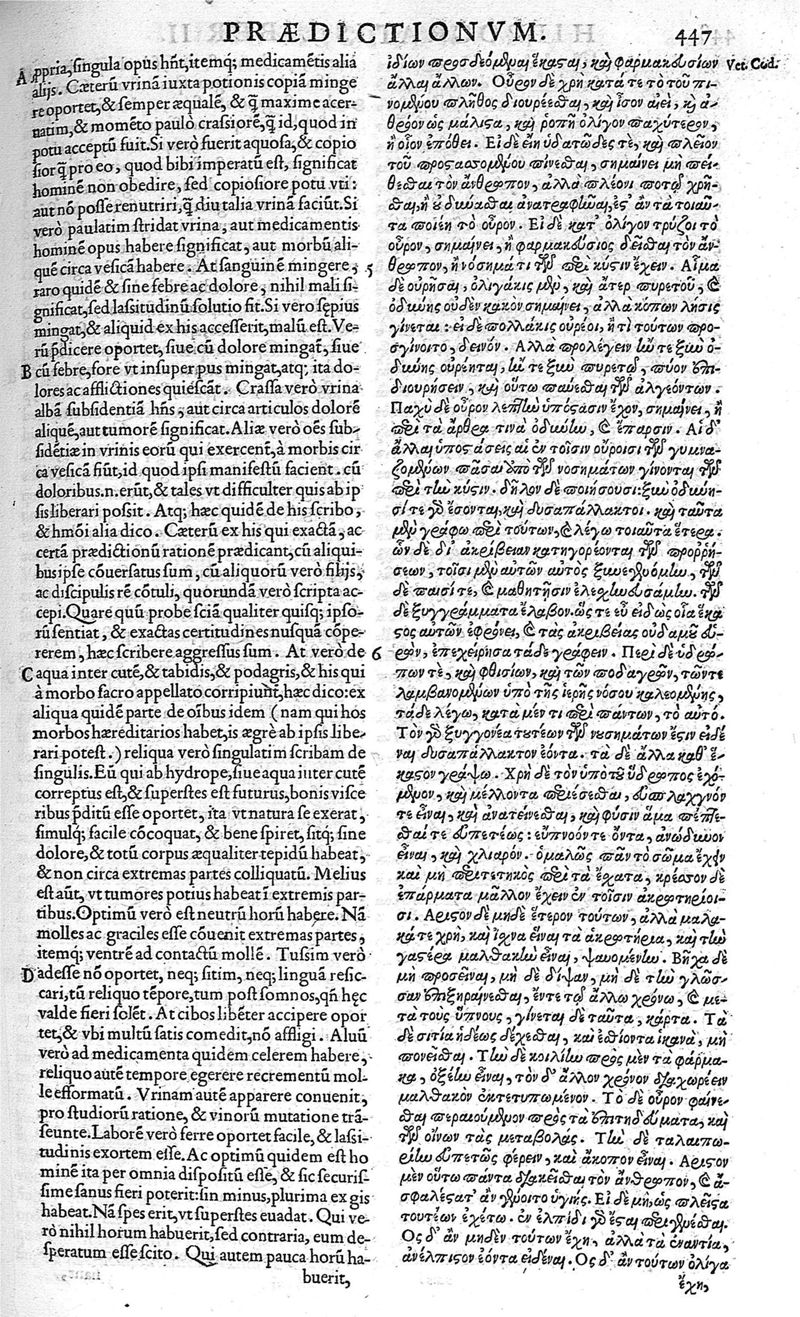 PRÆDICTIONVM. 447
A ppria, singula opus hñt, itemq; medicamētis alia
alijs. Cæterũ vrinã iuxta potionis copiã minge
re oportet, & semper æqualē, & q̃ maxime acer-
uatim, & momēto paulò crassiorē, q̃ id, quod in
potu acceptũ fuit. Si verò fuerit aquosa, & copio
sior q̃ pro eo, quod bibi imperatũ est, significat
hominē non obedire, sed copiosiore potu vti:
aut nõ posse renutriri, q̃ diu talia vrinã faciũt. Si
verò paulatim stridat vrina, aut medicamentis
hominē opus habere significat, aut morbũ ali-
quē circa vesicã habere. At sanguinē mingere,
raro quidē & sine febre ac dolore, nihil mali si-
gnificat, sed lassitudinũ solutio fit. Si vero sępius
mingat, & aliquid ex his accesserit, malũ est. Ve-
rũ p̃dicere oportet, siue cũ dolore mingat, siue
B cũ febre, fore vt insuper pus mingat, atq; ita do-
lores ac afflictiones quiescãt. Crassa verò vrina
albã subsidentiã hñs, aut circa articulos dolorē
aliquē, aut tumorē significat. Aliæ verò oēs sub-
sidētiæ in vrinis eorũ qui exercent, à morbis cir
ca vesicã fiũt, id quod ipsi manifestũ facient. cũ
doloribus .n. erũt, & tales vt difficulter quis ab ip
sis liberari possit. Atq; hæc quidē de his scribo,
& hmõi alia dico. Cæterũ ex his qui exactã, ac
certã prædictionũ ratione prædicant, cũ aliqui-
bus ipse cõuersatus sum, cũ aliquorũ verò filijs,
ac discipulis rē cõtuli, quorundã verò scripta ac-
cepi. Quare quũ probe sciã qualiter quisq; ipso-
rũ sentiat, & exactas certitudines nusquã cõpe-
rerem, hæc scribere aggressus sum. At verò de
C aqua inter cutē, & tabidis, & podagris, & his qui
à morbo sacro appellato corripiunt, hæc dico: ex
aliqua quidē parte de oībus idem (nam qui hos
morbos hæreditarios habet, is ægrè ab ipsis libe-
rari potest.) reliqua verò singulatim scribam de
singulis. Eũ qui ab hydrope, siue aqua inter cutē
correptus est, & superstes est futurus, bonis visce
ribus p̃ditũ esse oportet, ita vt natura se exerat,
simulq; facile cõcoquat, & bene spiret, sitq; sine
dolore, & totũ corpus æqualiter tepidũ habeat,
& non circa extremas partes colliquatũ. Melius
est aũt, vt tumores potius habeat ĩ extremis par-
tibus. Optimũ verò est neutrũ horũ habere. Nã
molles ac graciles esse cõuenit extremas partes,
itemq; ventrē ad contactũ mollē. Tussim verò
D adesse nõ oportet, neq; sitim, neq; linguã resic-
cari, tũ reliquo tēpore, tum post somnos, qñ hęc
valde fieri solēt. At cibos libēter accipere opor
tet, & vbi multũ satis comedit, nõ affligi. Aluũ
verò ad medicamenta quidem celerem habere,
reliquo autē tempore egerere recrementũ mol-
le efformatũ. Vrinam autē apparere conuenit,
pro studiorũ ratione, & vinorũ mutatione trã-
seunte. Laborē verò ferre oportet facile, & lassi-
tudinis exortem esse. Ac optimũ quidem est ho
minē ita per omnia dispositũ esse, & sic securis-
sime sanus fieri poterit: sin minus, plurima ex gis
habeat. Nã spes erit, vt superstes euadat. Qui ve-
rò nihil horum habuerit, sed contraria, eum de-
speratum esse scito. Qui autem pauca horũ ha-
buerit,
ἰδίων προσδεόμϑμαι ἕκασται, καὶ φαρμακεύσιων Vet. Cod.
ἄλλαι ἄλλων. Οὖρον δὲ χρὴ κατά τε τὸ τοῦ πι-
νομένου πλῆθος διουρέεσθαι, καὶ ἴσον αἰεὶ, κ̀ ἀ-
θρόον ὡς μάλιστα, καὶ ῥοπῇ ὀλίγον παχύτερον,
ἢ οἷον ἐπόθει. Εἰ δὲ εἴη ὑδατῶδές τε, καὶ πλεῖον
τοῦ προσασσομένου πίνεσθαι, σημαίνει μὴ πεί-
θεσθαι τὸν ἄνθρωπον, ἀλλὰ πλέονι ποτῷ χρῆ-
σθαι, ἢ ἐ δύνασθαι ἀνατραφῆναι, ἔστ' ἂν τὰ τοιαῦ-
τα ποιέῃ τὸ οὖρον. Εἰ δὲ κατ' ὀλίγον τρύζοι τὸ
οὖρον, σημαίνει, ἢ φαρμακεύσιος δεῖσθαι τὸν ἄν-
5 θρωπον, ἢ νόσημά τι τῶν περὶ κύστιν ἔχειν. Αἷμα
δὲ οὐρῆσαι, ὀλιγάκις μὲν, καὶ ἄτερ πυρετοῦ, καὶ
ὀδύνης οὐδὲν κακὸν σημαίνει, ἀλλὰ κόπων λῆσις
γίνεται: εἰ δὲ πολλάκις οὐρέοι, ἤ τι τούτων προ-
σγίνοιτο, δεινόν. Ἀλλὰ προλέγειν ἤν τε ξὺν ὀ-
δύνης οὐρέηται, ἤν τε ξὺν πυρετῷ, πύον ἐπι-
διουρήσειν, καὶ οὕτω παύεσθαι τῶν ἀλγεόντων.
Παχὺ δὲ οὖρον λεπτὴν ὑπόστασιν ἔχον, σημαίνει, ἢ
περὶ τὰ ἄρθρα τινὰ ὀδύνην, καὶ ἔπαρσιν. Αἱ δ'
ἄλλαι ὑποστάσεις αἱ ἐν τοῖσιν οὔροισι τῶν γυμνα-
ζομένων πᾶσαι ἀπὸ τῶν νοσημάτων γίνονται τῶν
περὶ τὴν κύστιν. δῆλον δὲ ποιήσουσι: ξὺν ὀδύνῃ-
σί τε γὰρ ἔσονται, καὶ δυσαπάλλακτοι. καὶ ταῦτα
μὲν γράφω περὶ τούτων, καὶ λέγω τοιαῦτα ἕτερα.
ὧν δὲ δι' ἀκρίβειαν κατηγορέονται τῶν προρρή-
σεων, τοῖσι μὲν αὐτῶν αὐτὸς ξυνεγενόμην, τῶν
δὲ παισί τε, καὶ μαθητῇσιν ἐλεσχηνευσάμην. τῶν
δὲ ξυγγράμματα ἔλαβον. ὥστε εὖ εἰδὼς οἷα ἕκα-
στος αὐτῶν ἐφρόνει, καὶ τὰς ἀκριβείας οὐδαμοῦ εὑ-
6 ρὼν, ἐπεχείρησα τάδε γράφειν. Περὶ δὲ ὑδρώ-
πων τε, καὶ φθισίων, καὶ τῶν ποδαγρῶν, τῶν τε
λαμβανομένων ὑπὸ τῆς ἱερῆς νόσου καλεομένης,
τάδε λέγω, κατὰ μέν τι περὶ πάντων, τὸ αὐτό.
Τὸν γὰρ ξυγγονέα τουτέων τῶν νοσημάτων ἔστιν εἰδέ-
ναι δυσαπάλλακτον ἐόντα. τὰ δὲ ἄλλα καθ' ἕ-
καστον γράψω. Χρὴ δὲ τὸν ὑπὸ τοῦ ὕδρωπος ἐχό-
μενον, καὶ μέλλοντα περιέσεσθαι, εὔσπλαγχνόν
τε εἶναι, καὶ ἀνατείνεσθαι, καὶ φύσιν ἅμα πέπτε-
σθαί τε εὐπετέως: εὔπνοόν τε ὄντα, ἀνώδυνον
εἶναι, καὶ χλιαρόν. ὁμαλῶς πᾶν τὸ σῶμα ἔχειν
καὶ μὴ περιτετηκὸς περὶ τὰ ἔσχατα, κρέσσον δὲ
ἐπάρματα μᾶλλον ἔχειν ἐν τοῖσιν ἀκρωτηρίοι-
σι. Ἄριστον δὲ μηδέτερον τούτων, ἀλλὰ μαλα-
κά τε χρὴ, καὶ ἰσχνὰ εἶναι τὰ ἀκρωτήρια, καὶ τὴν
γαστέρα μαλθακὴν εἶναι, ψαυομένην. Βῆχα δὲ
μὴ προσεῖναι, μὴ δὲ δίψαν, μὴ δὲ τὴν γλῶσ-
σαν ἐπιξηραίνεσθαι, ἔν τε τῷ ἄλλῳ χρόνῳ, καὶ με-
τὰ τοὺς ὕπνους, γίνεται δὲ ταῦτα, κάρτα. Τὰ
δὲ σιτία ἡδέως δέχεσθαι, καὶ ἐσθίοντα ἱκανὰ, μὴ
πονεῖσθαι. Τὴν δὲ κοιλίην πρὸς μὲν τὰ φάρμα-
κα, ὀξείην εἶναι, τὸν δ' ἄλλον χρόνον διαχωρέειν
μαλθακὸν ἐκτετυπωμένον. Τὸ δὲ οὖρον φαίνε-
σθαι περαιούμενον πρὸς τὰ ἐπιτηδεύματα, καὶ
τῶν οἴνων τὰς μεταβολάς. Τὴν δὲ ταλαιπω-
ρίην εὐπετῶς φέρειν, καὶ ἄκοπον εἶναι. Ἄριστον
μὲν οὕτω πάντα διακεῖσθαι τὸν ἄνθρωπον, καὶ ἀ-
σφαλέστατ' ἂν γένοιτο ὑγιής. Εἰ δὲ μὴ, ὡς πλεῖστα
τουτέων ἐχέτω. ἐν ἐλπίδι γὰρ ἔσται περιγενέσθαι.
Ὃς δ' ἂν μηδὲν τούτων ἔχῃ, ἀλλὰ τὰ ἐναντία,
ἀνέλπιστον ἐόντα εἰδέναι. Ὃς δ' ἂν τούτων ὀλίγα
ἔχῃ,